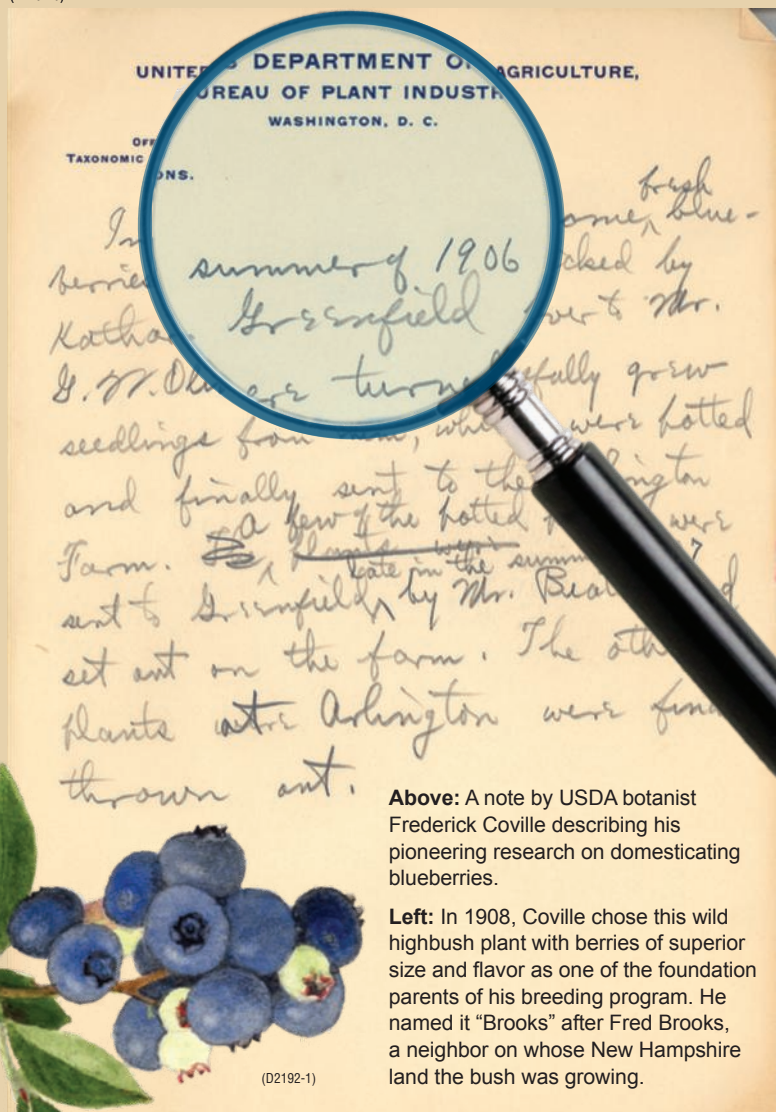 UNITE S DEPARTMENT O AGRICULTURE,
UREAU OF PLANT INDUSTR
WASHINGTON, D. C.
OFF
TAXONOMIC
ONS.
fresh
In ome blue-
berrie summer of 1906 cked by
Katha Greenfield over to Mr.
G. W. Oli turne fully grew
seedlings from were potted
and finally sent to the ington
a few of the potted were
Farm.
late in the summer
sent to Greenfield, by Mr. Beat d
set out on the farm. The oth
plants at the Arlington were fin
thrown out.
Above: A note by USDA botanist
Frederick Coville describing his
pioneering research on domesticating
blueberries.
Left: In 1908, Coville chose this wild
highbush plant with berries of superior
size and flavor as one of the foundation
parents of his breeding program. He
named it “Brooks” after Fred Brooks,
a neighbor on whose New Hampshire
land the bush was growing.
(D2192-1)